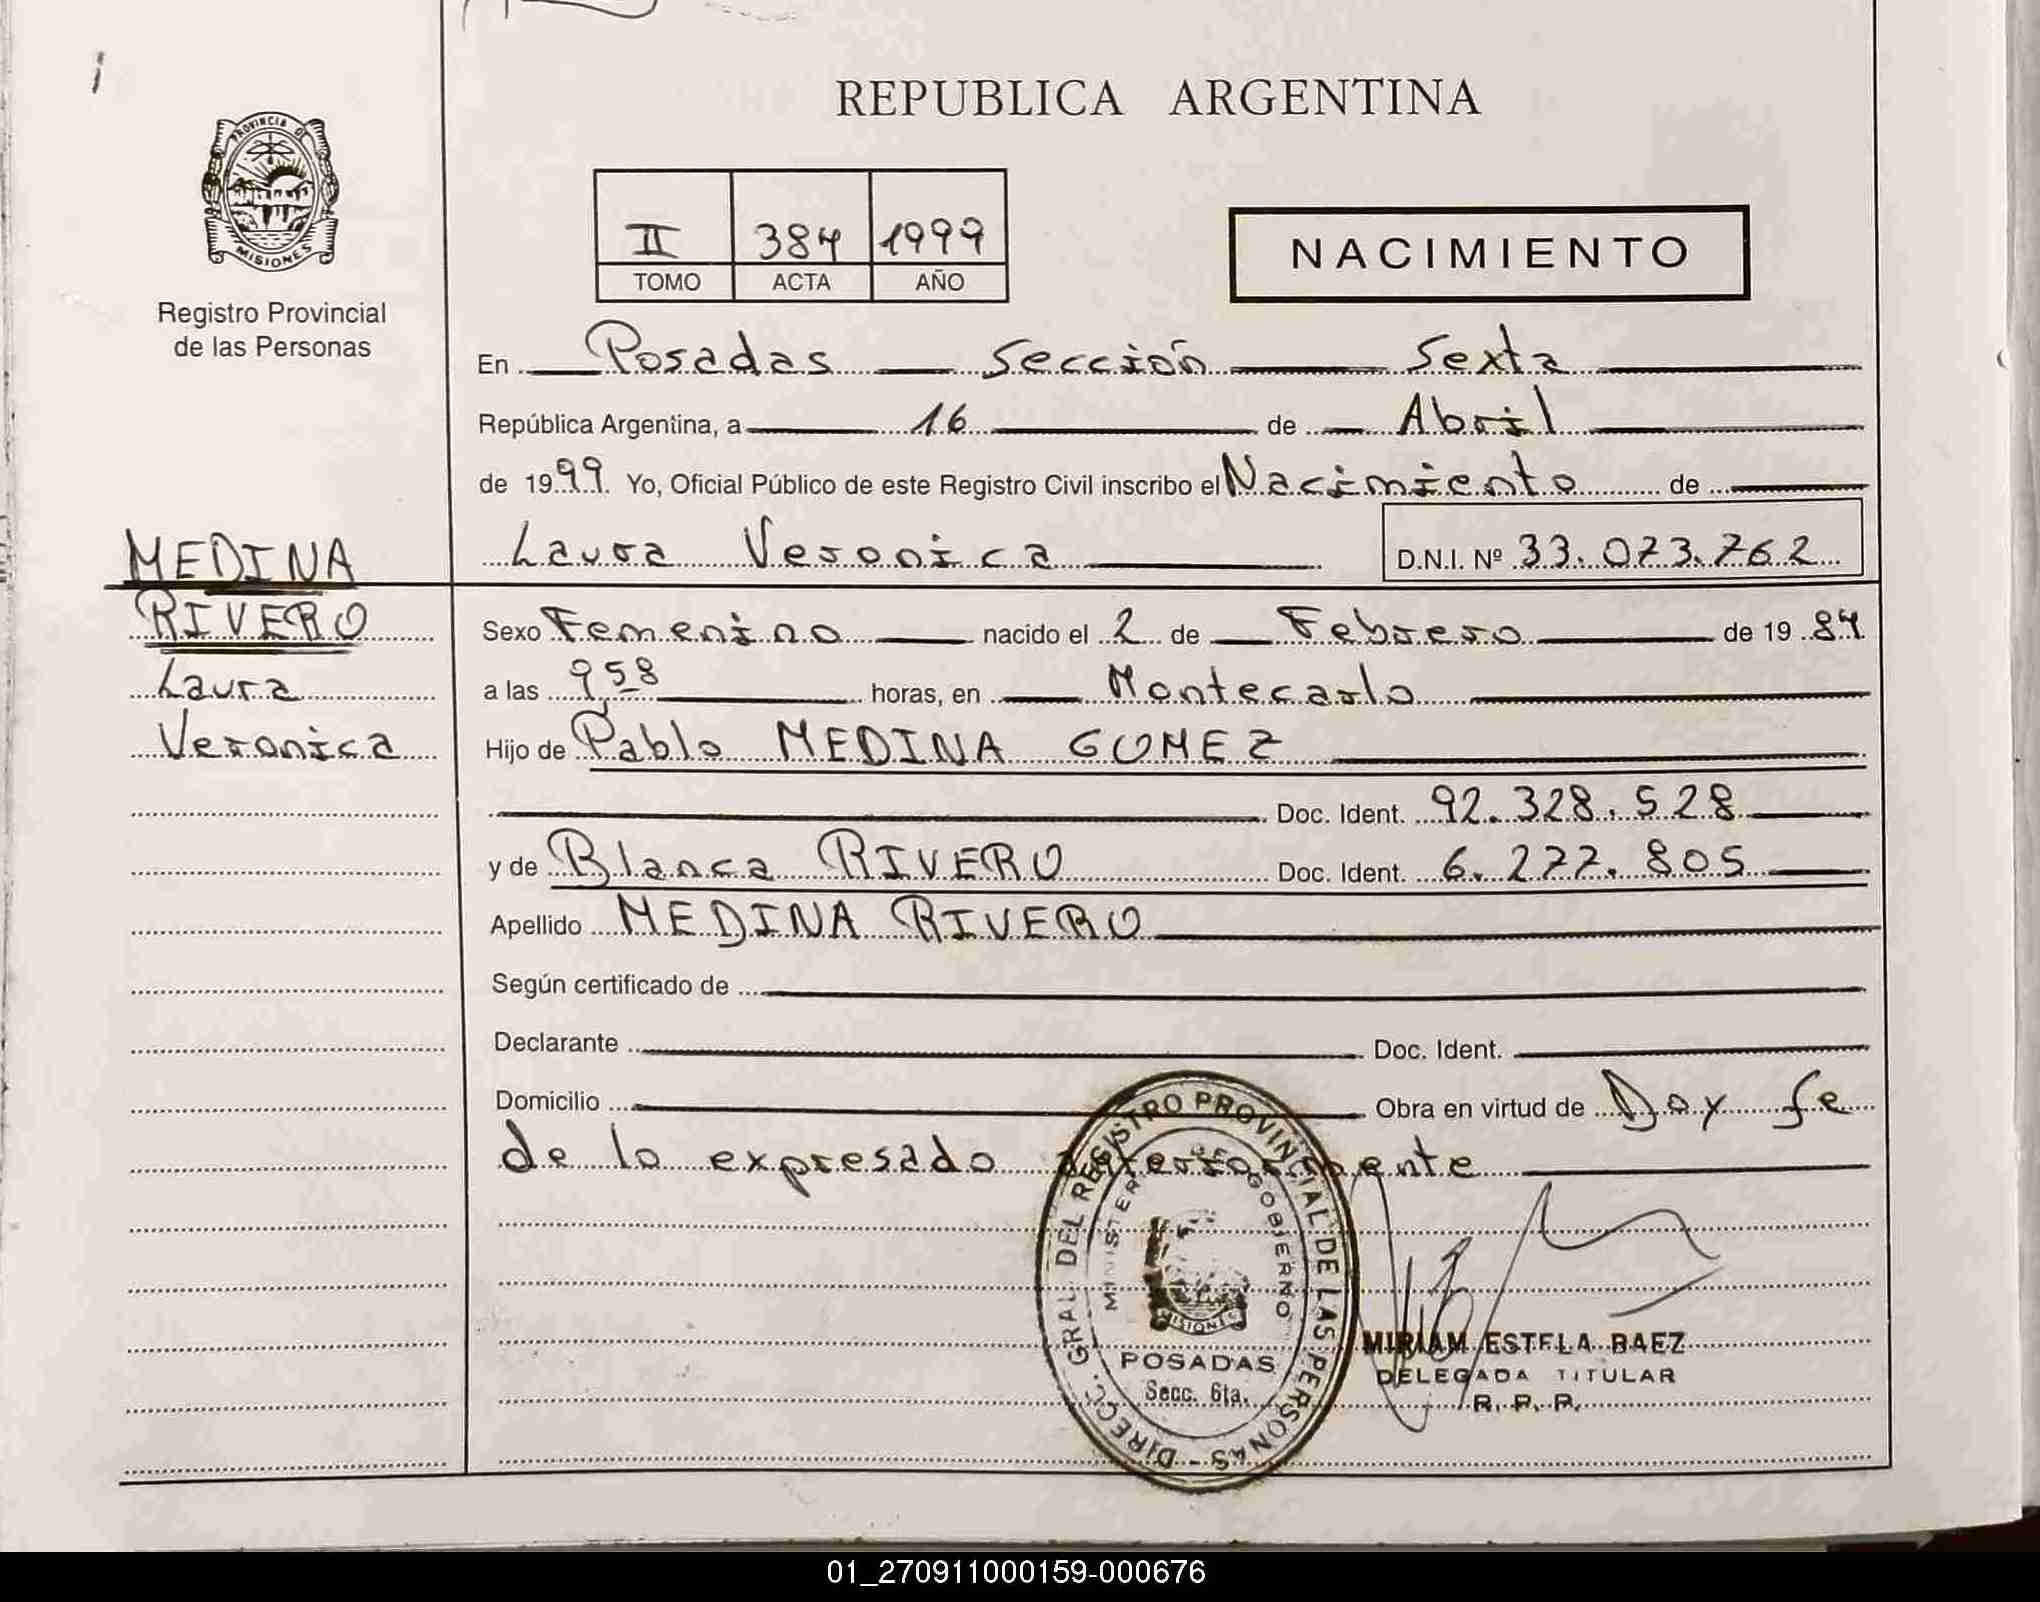 REPUBLICA ARGENTINA
PROVINCIA DE
MISIONES
Registro Provincial
de las Personas
II 384 1999
TOMO ACTA AÑO
NACIMIENTO
En Posadas Sección Sexta
República Argentina, a 16 de Abril
de 1999. Yo, Oficial Público de este Registro Civil inscribo el Nacimiento de
Laura Veronica D.N.I. Nº 33.073.762
MEDINA
RIVERO
Laura
Veronica
Sexo Femenino nacido el 2 de Febrero de 1984
a las 9,58 horas, en Montecarlo
Hijo de Pablo MEDINA GOMEZ
Doc. Ident. 92.328.528
y de Blanca RIVERO Doc. Ident. 6.277.805
Apellido MEDINA RIVERO
Según certificado de
Declarante Doc. Ident.
Domicilio Obra en virtud de Doy fe
de lo expresado anteriormente
DIRECC. GRAL. DEL REGISTRO PROVINCIAL DE LAS PERSONAS -
GOBIERNO
MISIONES
POSADAS
Secc. 6ta.
MIRIAM ESTELA BAEZ
DELEGADA TITULAR
R. P. P.
01_270911000159-000676